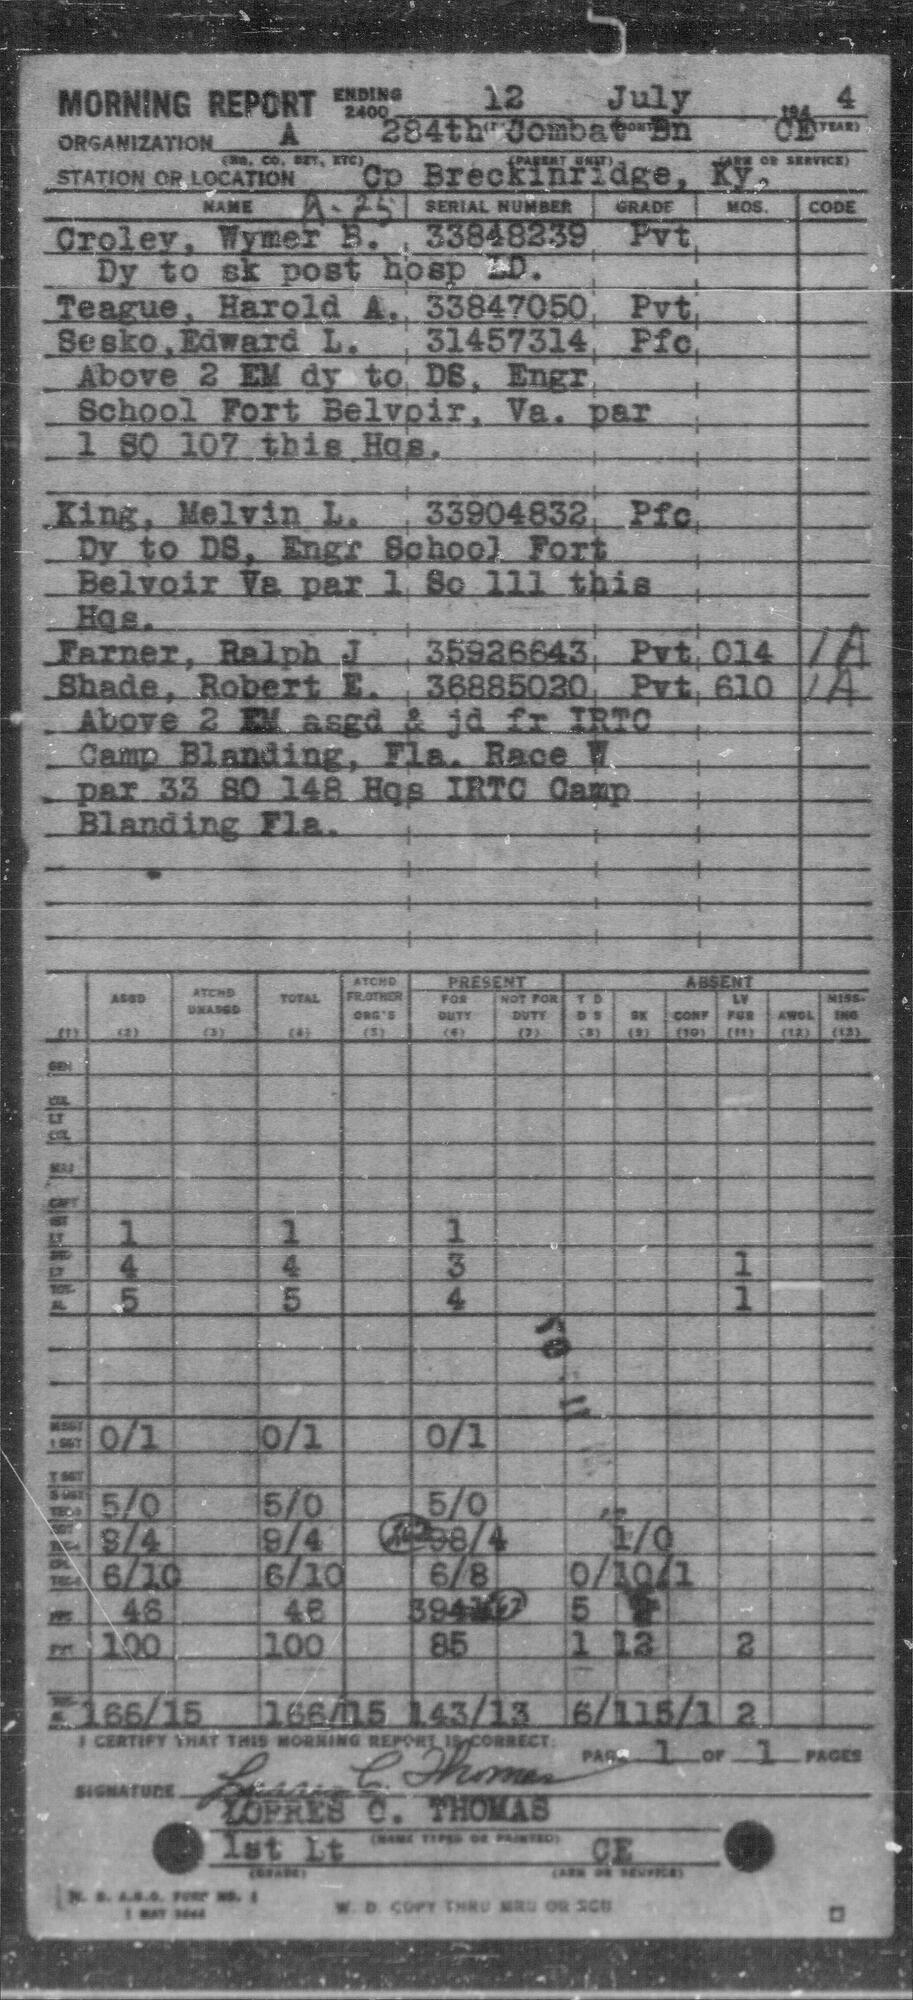 MORNING REPORT ENDING 2400 12 July 194 4
ORGANIZATION A 284th Combat Bn CE
(BN, CO, DET, ETC) (PARENT UNIT) (ARM OR SERVICE)
STATION OR LOCATION Cp Breckinridge, Ky.
NAME A-25 SERIAL NUMBER GRADE MOS. CODE
Croley, Wymer B. 33848239 Pvt
Dy to sk post hosp LD.
Teague, Harold A. 33847050 Pvt
Sesko, Edward L. 31457314 Pfc
Above 2 EM dy to DS, Engr
School Fort Belvoir, Va. par
1 SO 107 this Hqs.
King, Melvin L. 33904832 Pfc
Dy to DS, Engr School Fort
Belvoir Va par 1 So 111 this
Hqs.
Farner, Ralph J 35926643 Pvt 014 1A
Shade, Robert E. 36885020 Pvt 610 1A
Above 2 EM asgd & jd fr IRTC
Camp Blanding, Fla. Race W
par 33 SO 148 Hqs IRTC Camp
Blanding Fla.
PRESENT ABSENT
ASGD ATCHD UNASGD TOTAL ATCHD FR.OTHER ORG'S FOR DUTY NOT FOR DUTY T D D S SK CONF LV FUR AWOL MISS-ING
(1) (2) (3) (4) (5) (6) (7) (8) (9) (10) (11) (12) (13)
GEN
COL
LT COL
MAJ
CAPT
1ST LT 1 1 1
2ND LT 4 4 3 1
TOT-AL 5 5 4 1
MSGT 1 SGT 0/1 0/1 0/1
T SGT
5/0 5/0 5/0
9/4 9/4 /4 1/0
6/10 6/10 6/8 0/1 0/1
PFC 46 46 5
PVT 100 100 85 1 12 2
TOT-AL 166/15 166/15 143/13 6/1 15/1 2
I CERTIFY THAT THIS MORNING REPORT IS CORRECT. PAGE 1 OF 1 PAGES
SIGNATURE C. Thomas
C. THOMAS
1st Lt (NAME TYPED OR PRINTED) CE
(GRADE) (ARM OR SERVICE)
W. D. A.G.O. FORM NO. 1
1 MAY 1944
W. D. COPY THRU MRU OR SCU